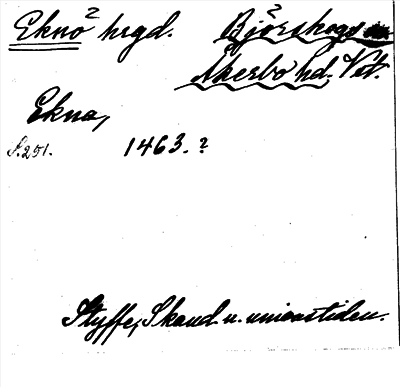 Eknö² hrgd. Björskogs² sn
Åkerbo hd. Vst.
Ekna,
S. 251. 1463.?
Styffe, Skand. u. unionstiden.